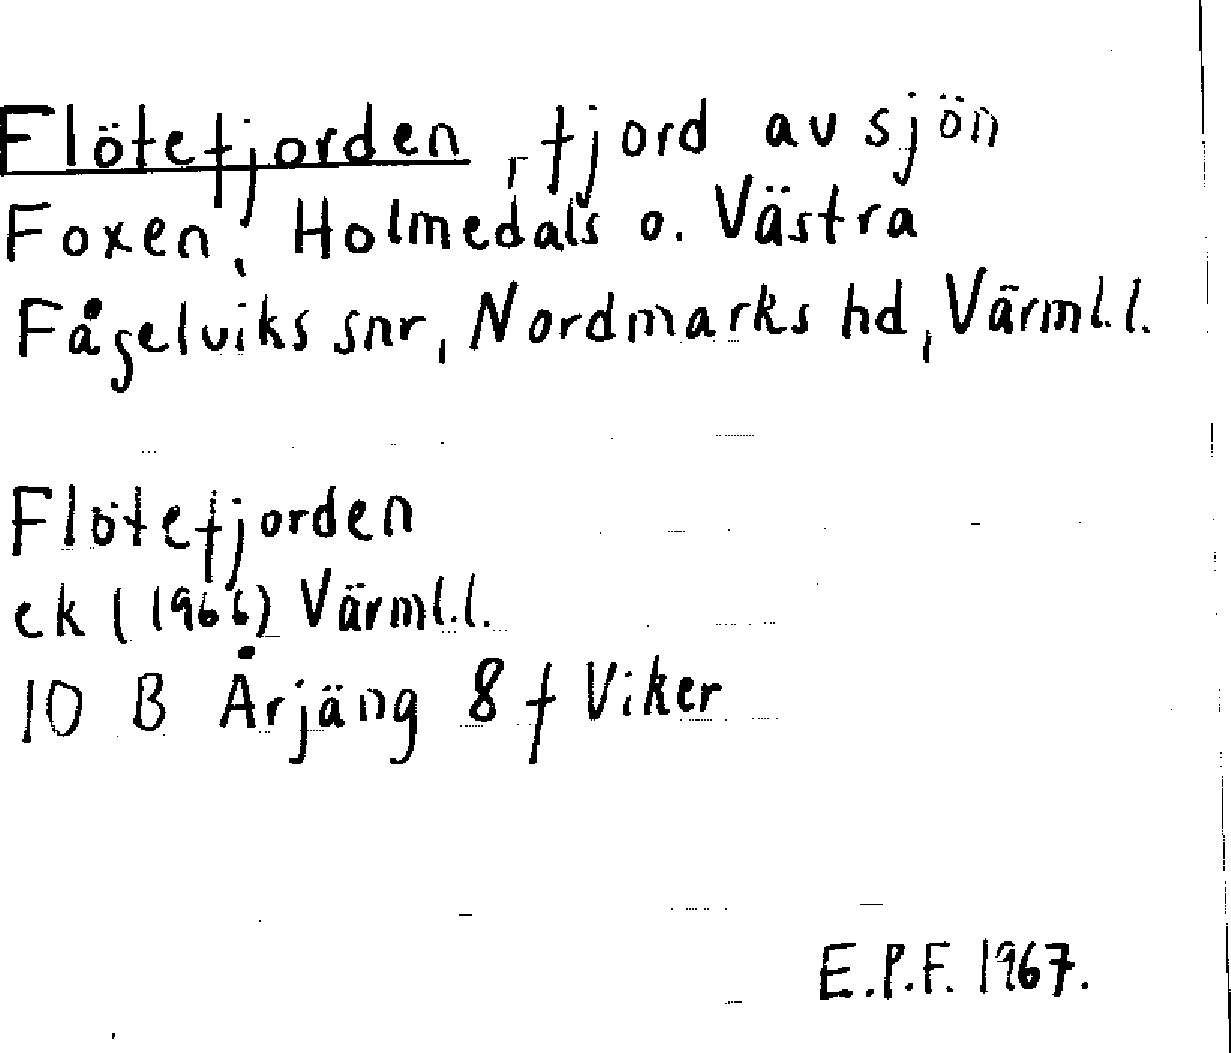 Flötefjorden, fjord av sjön
Foxen, Holmedals o. Västra
Fågelviks snr, Nordmarks hd, Värml.l.
Flötefjorden
ek (1966) Värml.l.
10 B Årjäng 8 f Viker
E.P.F. 1967.